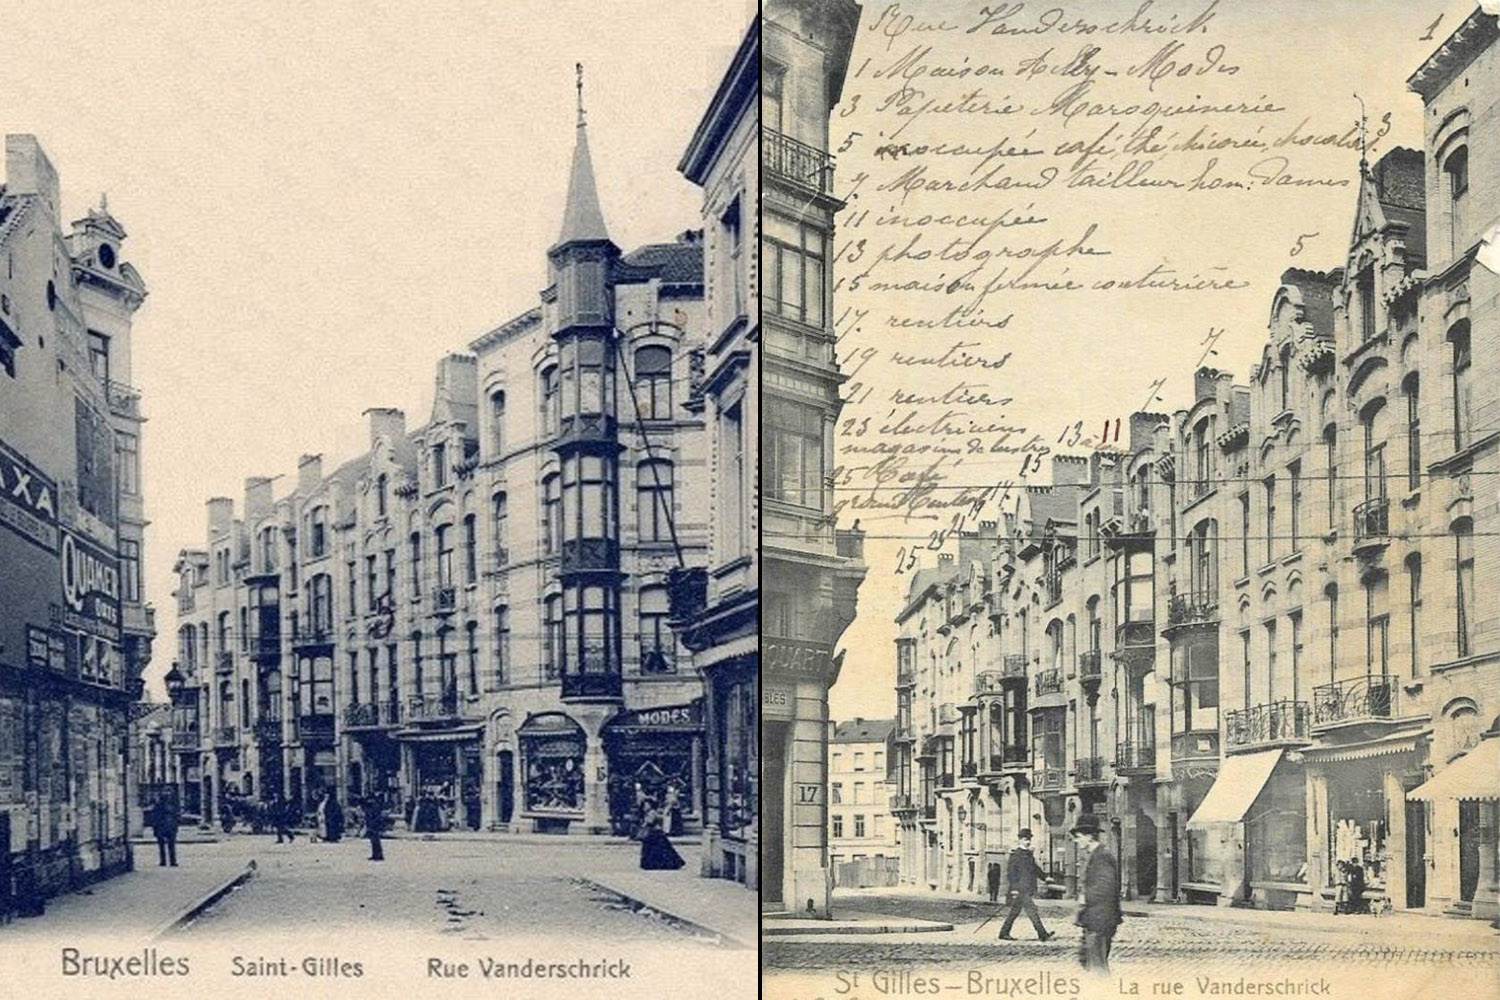 AXA
QUAKER
OATS
MODES
Bruxelles Saint-Gilles Rue Vanderschrick
Rue Vanderschrick
1
1 Maison - Modes
3 Papeterie Maroquinerie
3
5 inoccupée café, thé, chicorée, chocolat
7 Marchand tailleur hom: Dames
11 inoccupée
13 photographe
5
15 maison fermée couturière
17 rentiers
7
19 rentiers
21 rentiers
7
23 électriciens
13 à 11
magasin de lustres
15
25 Café
17
19
21
23
25
17
St Gilles-Bruxelles La rue Vanderschrick